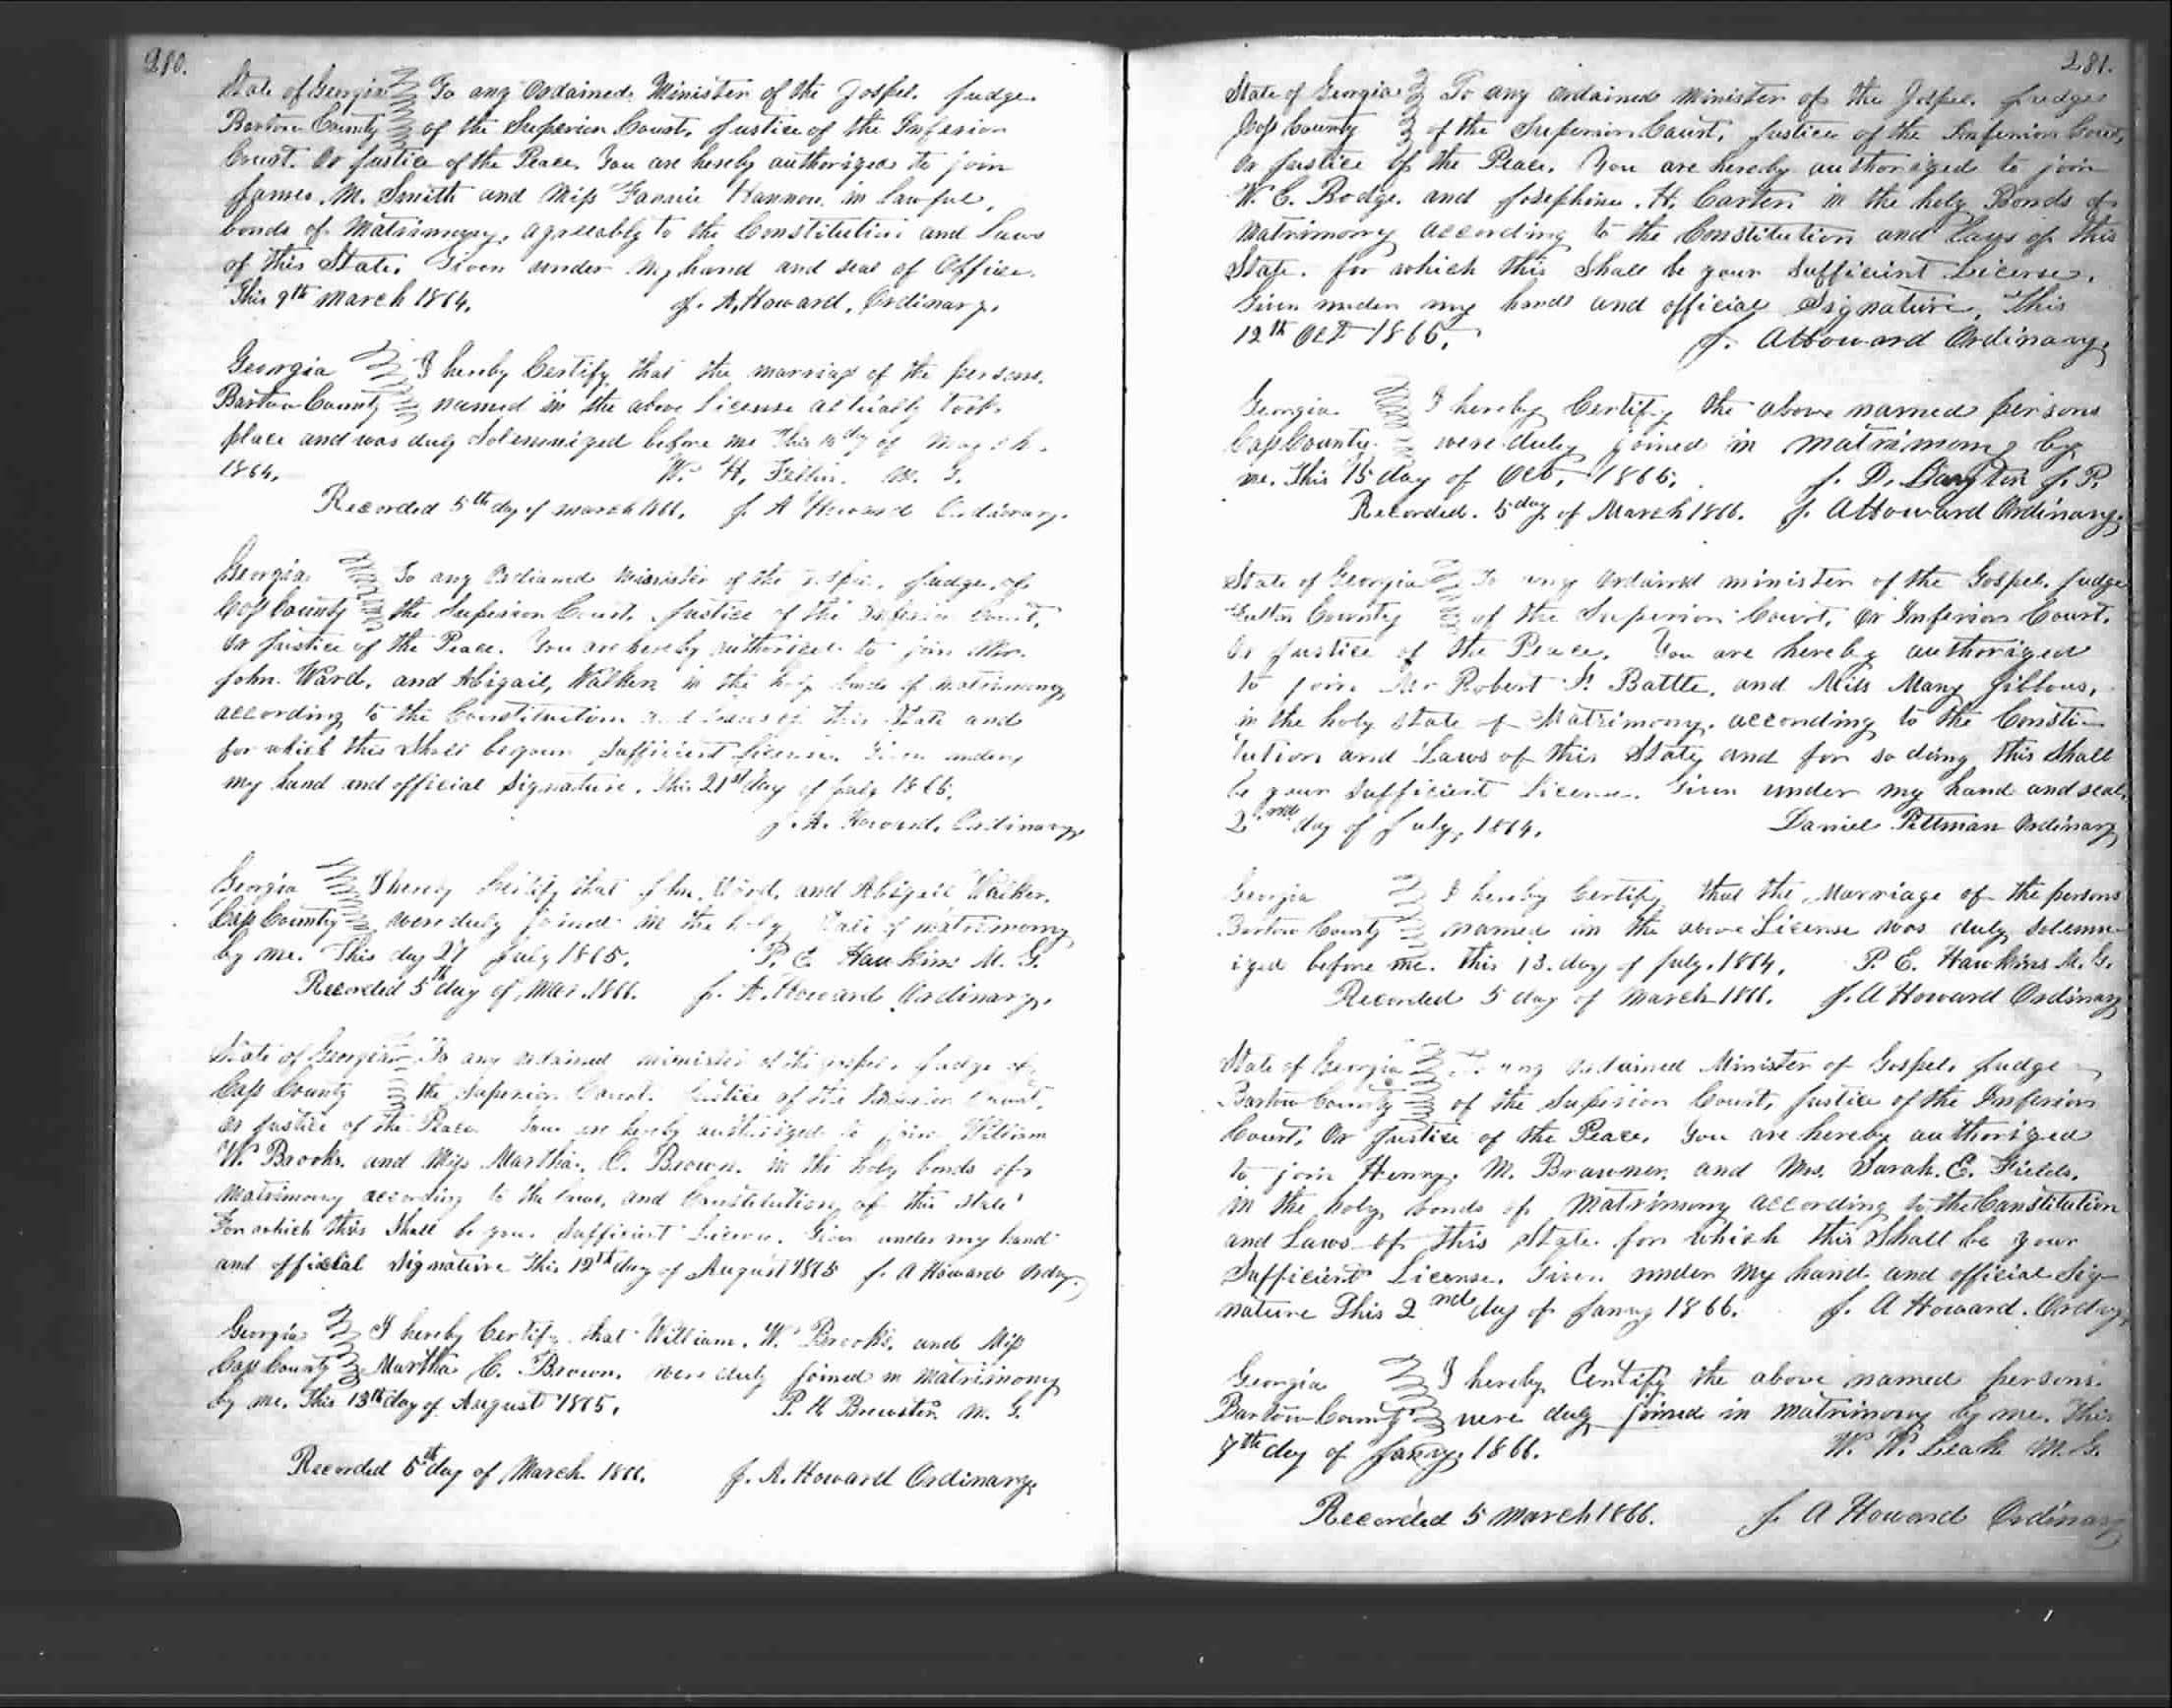 280.
State of Georgia To any Ordained Minister of the Gospel. Judge
Bartow County of the Superior Court, Justice of the Inferior
Court. Or Justice of the Peace. You are hereby authorized to join
James. M. Smith and Miss Fannie Hannon. in lawful
bonds of Matrimony, agreeably to the Constitution and Laws
of this State. Given under my hand and seal of Office.
This 9th March 1864. J. A. Howard, Ordinary.
Georgia I hereby Certify that the marriage of the persons
Bartow County named in the above License actually took
place and was duly Solemnized before me This 10 dy of March.
1864. W. H. M. G.
Recorded 5th day of march 1866. J. A Howard Ordinary.
Georgia To any Ordiand Minister of the Gospel. Judge of
Cass County the Superior Court. Justice of the Inferior Court,
Or Justice of the Peace. You are hereby authorized to join Mr.
John. Ward. and Abigail, Walker in the holy bonds of matrimony
according to the Constitution and Laws of this State and
for which this Shall be your Sufficient License. Given under
my hand and official Signature. This 21st day of July 1865.
J. A. Howard. Ordinary.
Georgia I hereby Certify that John. Ward. and Abigail Walker.
Cass County were duly joined in the holy State of matrimony
by me. This day 27 July 1865. P. E. Hawkins M. G.
Recorded 5th day of Mar. 1866. J. A. Howard Ordinary.
State of Georgia To any ordained minister of the gospel. Judge of
Cass County the Superior Court. Justice of the Inferior Court,
Or Justice of the Peace You are hereby authorized to join William
W. Brooks, and Miss Martha. C. Brown. in the holy bonds of
Matrimony according to the laws, and Constitution, of this State
For which this Shall be your Sufficient License. Given under my hand
and official Signature This 12th day of August 1865 J. A Howard Ordy.
Georgia I hereby Certify that William. W. Brooks, and Miss
Cass County Martha C. Brown. were duly joined in matrimony
by me. This 13th day of August 1865. P. H Brewster M. G.
Recorded 5th day of March 1866. J. A. Howard Ordinary.
281.
State of Georgia To any ordained minister of the Gospel. Judge
Cass County of the Superior Court, Justice of the Inferior Court,
Or Justice of the Peace. You are hereby authorized to join
W. C. Rodge. and Josephine. H. Carter. in the holy Bonds of
Matrimony according to the Constitution and Laws of this
State. for which this Shall be your Sufficient License.
Given under my hand and official Signature, This
12th Oct 1865. J. A Howard Ordinary.
Georgia I hereby Certify the above named persons
Cass County were duly joined in matrimony by
me. This 15 day of Oct. 1865. J. D. J. P.
Recorded. 5 day of March 1866. J. A Howard Ordinary.
State of Georgia To any Ordaind minister of the Gospel. Judge
Fulton County of the Superior Court, Or Inferior Court.
Or Justice of the Peace. You are hereby authorized
to join. Mr Robert F. Battle, and Miss Mary Gibbons,
in the holy state of Matrimony. according to the Consti-
tution and Laws of this State and for so doing this Shall
be your Sufficient License. Given under my hand and seal.
2nd day of July, 1864. Daniel Pittman Ordinary
Georgia I hereby Certify that the Marriage of the persons
Bartow County named in the above License was duly solemn-
ized before me. This 13. day of July. 1864. P. E. Hawkins M. G.
Recorded 5 day of March 1866. J. A Howard Ordinary
State of Georgia To any ordained Minister of Gospel. Judge
Bartow County of the Superior Court, Justice of the Inferior
Court. Or Justice of the Peace. You are hereby authorized
to join Henry. M. Brawner. and Mrs. Sarah. E. Fields.
in the holy bonds of Matrimony according to the Constitution
and Laws of this State for which this Shall be your
Sufficient License. Given under my hand and official Sig-
nature This 2nd day of Janry 1866. J. A Howard. Ordny
Georgia I hereby Certify the above named persons.
Bartow County were duly joined in matrimony by me. This
7th day of Janry. 1866. W. W. Leak M. G.
Recorded 5 March 1866. J. A Howard Ordinary